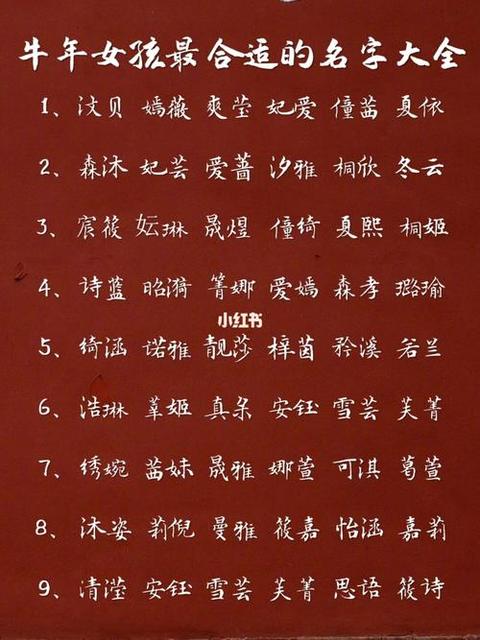 牛年女孩最合适的名字大全
1、汶贝 嫣薇 爽莹 妃爱 僮茜 夏依
2、森沐 妃芸 爱蔷 汐雅 桐欣 冬云
3、宸筱 妘琳 晟煜 僮绮 夏熙 桐姬
4、诗蓝 昭漪 箐娜 爱嫣 森孝 璐瑜
小红书
5、绮涵 诺雅 靓莎 梓茵 矜溪 若兰
6、浩琳 姬 真 安钰 雪芸 芙菁
7、绣婉 茜妹 晟雅 娜萱 可淇 葛萱
8、沐姿 莉倪 曼雅 筱嘉 怡涵 嘉莉
9、清滢 安钰 雪芸 芙菁 思语 筱诗